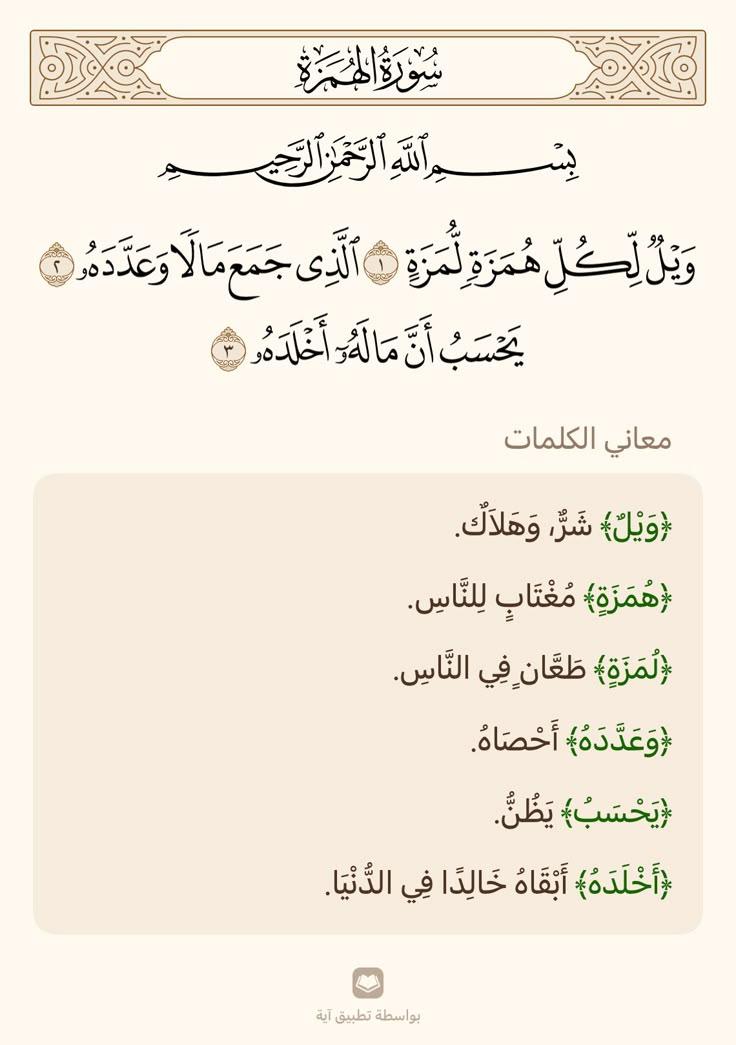 سُورَةُ الهُمَزَةِ
بِسْمِ ٱللَّهِ ٱلرَّحْمَٰنِ ٱلرَّحِيمِ
وَيْلٌ لِّكُلِّ هُمَزَةٍ لُّمَزَةٍ ١ ٱلَّذِى جَمَعَ مَالًا وَعَدَّدَهُۥ ٢
يَحْسَبُ أَنَّ مَالَهُۥٓ أَخْلَدَهُۥ ٣
معاني الكلمات
﴿وَيْلٌ﴾ شَرٌّ، وَهَلَاكٌ.
﴿هُمَزَةٍ﴾ مُغْتَابٍ لِلنَّاسِ.
﴿لُمَزَةٍ﴾ طَعَّانٍ فِي النَّاسِ.
﴿وَعَدَّدَهُ﴾ أَحْصَاهُ.
﴿يَحْسَبُ﴾ يَظُنُّ.
﴿أَخْلَدَهُ﴾ أَبْقَاهُ خَالِدًا فِي الدُّنْيَا.
بواسطة تطبيق آية